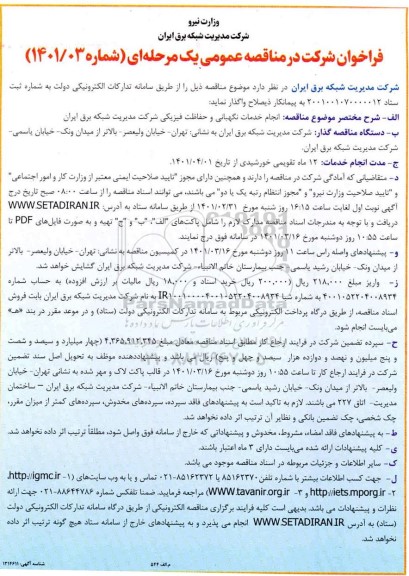 وزارت نیرو
شرکت مدیریت شبکه برق ایران
فراخوان شرکت در مناقصه عمومی یک مرحله‌ای (شماره ۱۴۰۱/۰۳)
شرکت مدیریت شبکه برق ایران در نظر دارد موضوع مناقصه ذیل را از طریق سامانه تدارکات الکترونیکی دولت به شماره ثبت
ستاد ۲۰۰۱۰۰۱۰۷۰۰۰۰۰۱۲ به پیمانکار ذیصلاح واگذار نماید:
الف- شرح مختصر موضوع مناقصه: انجام خدمات نگهبانی و حفاظت فیزیکی شرکت مدیریت شبکه برق ایران
ب- دستگاه مناقصه گذار: شرکت مدیریت شبکه برق ایران به نشانی: تهران- خیابان ولیعصر- بالاتر از میدان ونک- خیابان یاسمی-
شرکت مدیریت شبکه برق ایران.
ج- مدت انجام خدمات: ۱۲ ماه تقویمی خورشیدی از تاریخ ۱۴۰۱/۰۴/۰۱.
د- متقاضیانی که آمادگی شرکت در مناقصه را دارند و همچنین دارای مجوز "تایید صلاحیت ایمنی معتبر از وزارت کار و امور اجتماعی"
و "تایید صلاحیت وزارت نیرو" و "مجوز انتظام رتبه یک یا دو" می باشند، می توانند اسناد مناقصه را از ساعت ۰۸:۰۰ صبح تاریخ درج
آگهی نوبت اول لغایت ساعت ۱۶:۱۵ روز شنبه مورخ ۱۴۰۱/۰۲/۳۱ از طریق سامانه ستاد به آدرس: WWW.SETADIRAN.IR
دریافت و با توجه به مندرجات اسناد مناقصه مدارک لازم را شامل پاکت‌های "الف"، "ب" و "ج" تهیه و به صورت فایل‌های PDF تا
ساعت ۱۰:۵۵ روز دوشنبه مورخ ۱۴۰۱/۰۳/۱۶ در سامانه فوق درج نمایند.
و- پیشنهادهای واصله راس ساعت ۱۱ روز دوشنبه مورخ ۱۴۰۱/۰۳/۱۶ در کمیسیون مناقصه به نشانی: تهران- خیابان ولیعصر- بالاتر
از میدان ونک- خیابان رشید یاسمی- جنب بیمارستان خاتم الانبیاء- شرکت مدیریت شبکه برق ایران گشایش خواهد شد.
ز- واریز مبلغ ۲۱۸,۰۰۰ ریال (۲۰۰,۰۰۰ ریال خرید اسناد و ۱۸,۰۰۰ ریال مالیات بر ارزش افزوده) به حساب شماره
به نام شرکت مدیریت شبکه برق ایران بابت فروش
اسناد مناقصه، از طریق درگاه پرداخت الکترونیکی مربوط به سامانه تدارکات الکترونیکی دولت (ستاد) و در موعد مقرر در بند «ه»
می‌بایست انجام شود.
ح- سپرده تضمین شرکت در فرایند ارجاع کار مطابق اسناد مناقصه معادل مبلغ ۴,۳۶۵,۹۱۲,۳۴۵ (چهار میلیارد و سیصد و شصت
و پنج میلیون و نهصد و دوازده هزار سیصد و چهل و پنج) ریال می باشد و پیشنهاددهنده موظف به تحویل اصل سند تضمین
شرکت در فرایند ارجاع کار تا ساعت ۱۰:۵۵ روز دوشنبه مورخ ۱۴۰۱/۰۳/۱۶ در قالب پاکت لاک و مهر شده به نشانی تهران- خیابان
ولیعصر- بالاتر از میدان ونک- خیابان رشید یاسمی- جنب بیمارستان خاتم الانبیاء- شرکت مدیریت شبکه برق ایران – ساختمان
مدیریت- اتاق ۲۲۷ می باشند. لازم به تاکید است به پیشنهادهای فاقد سپرده، سپرده‌های مخدوش، سپرده‌های کمتر از میزان مقرر،
چک شخصی، چک تضمین بانکی و نظایر آن ترتیب اثر داده نخواهد شد.
ط- به پیشنهادهای فاقد امضاء، مشروط، مخدوش و پیشنهاداتی که خارج از سامانه فوق واصل شود، مطلقاً ترتیب اثر داده نخواهد شد.
ی- کلیه پیشنهادات ارائه شده می‌بایست دارای ۳ ماه اعتبار باشند.
ک- سایر اطلاعات و جزئیات مربوطه در اسناد مناقصه موجود می باشد.
ل- جهت کسب اطلاعات بیشتر با شماره تلفن ۸۵۱۶۲۳۷۰ یا ۸۵۱۶۲۳۷۲-۰۲۱ تماس و یا به وب سایت‌های (۱- http://igmc.ir،
۲- http://iets.mporg.ir و ۳- www.tavanir.org.ir) مراجعه فرمایید. ضمنا تلفکس شماره ۸۸۶۴۴۷۸۶-۰۲۱ جهت ارائه
نظرات و پیشنهادات می باشد. بدیهی است کلیه فرایند برگزاری مناقصه الکترونیکی از طریق درگاه سامانه تدارکات الکترونیکی دولت
(ستاد) به آدرس WWW.SETADIRAN.IR انجام می پذیرد و به پیشنهادهای خارج از سامانه ستاد هیچ گونه ترتیب اثر داده
نخواهد شد.
م الف ۵۳۴
شناسه آگهی: ۱۳۱۴۶۱۱